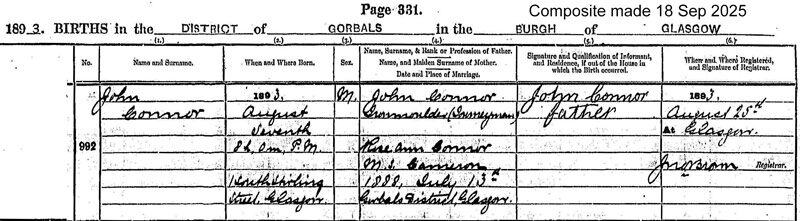 Page 331.
Composite made 18 Sep 2025
1893. BIRTHS in the DISTRICT of GORBALS in the BURGH of GLASGOW
(1.) (2.) (3.) (4.) (5.) (6.)
No.
Name and Surname.
When and Where Born.
Sex.
Name, Surname, & Rank or Profession of Father.
Name, and Maiden Surname of Mother.
Date and Place of Marriage.
Signature and Qualification of Informant,
and Residence, if out of the House in
which the Birth occurred.
When and Where Registered,
and Signature of Registrar.
992
John
Connor
1893.
August
Seventh
8h. 0m. P.M.
1 South Stirling
Street, Glasgow
M.
John Connor
Ironmoulder (Journeyman)
Rose Ann Connor
M.S. Cameron
1888, July 13th
Gorbals District, Glasgow
John Connor
father
1893.
August 25th
At Glasgow.
Registrar.